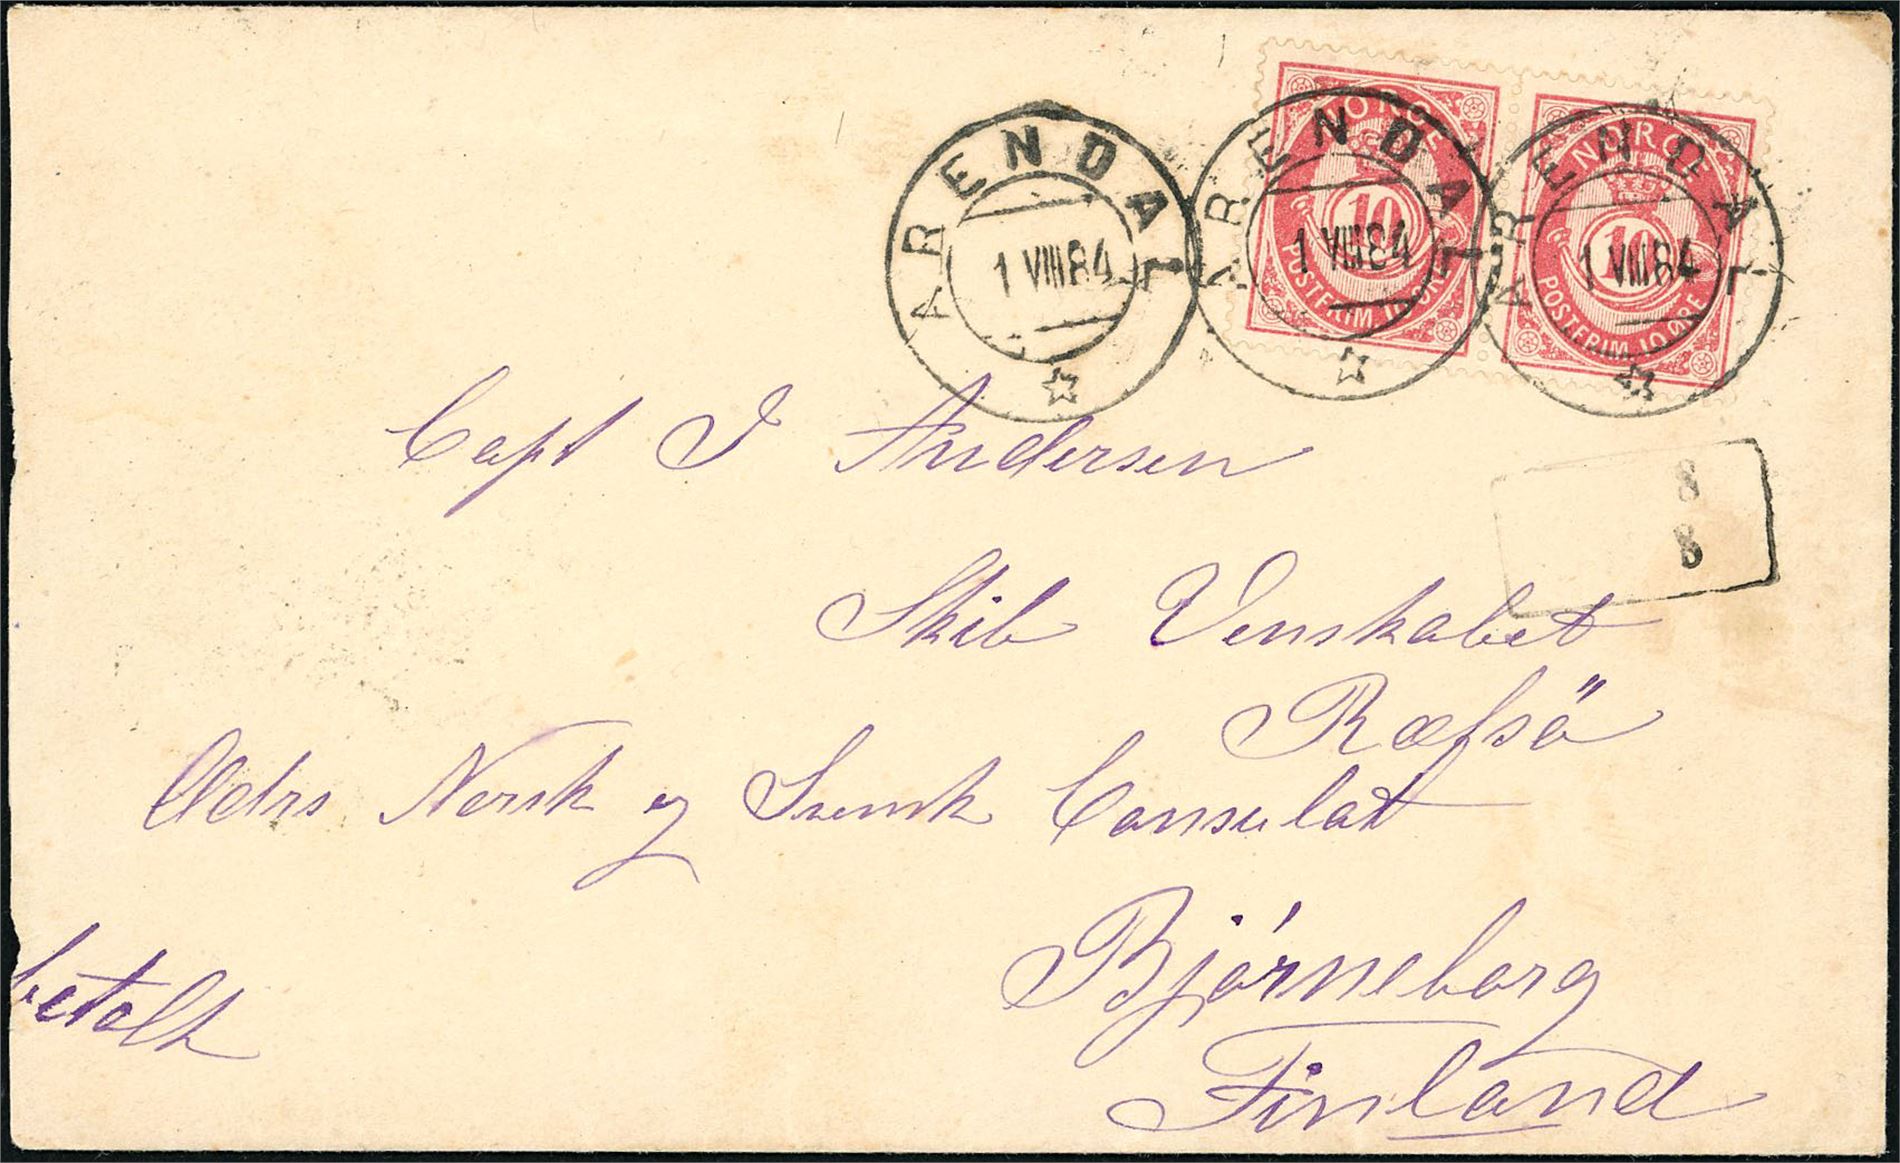 NORGE 10 POSTFRIM. 10 ØRE
NORGE 10 POSTFRIM. 10 ØRE
ARENDAL 1 VIII 84
ARENDAL 1 VIII 84
ARENDAL 1 VIII 84
Capt J Andersen
8
8
Skib Venskabet
Ræfsö
Adrs Norsk og Svensk Consulat
Bjørneborg
betalt
Finland